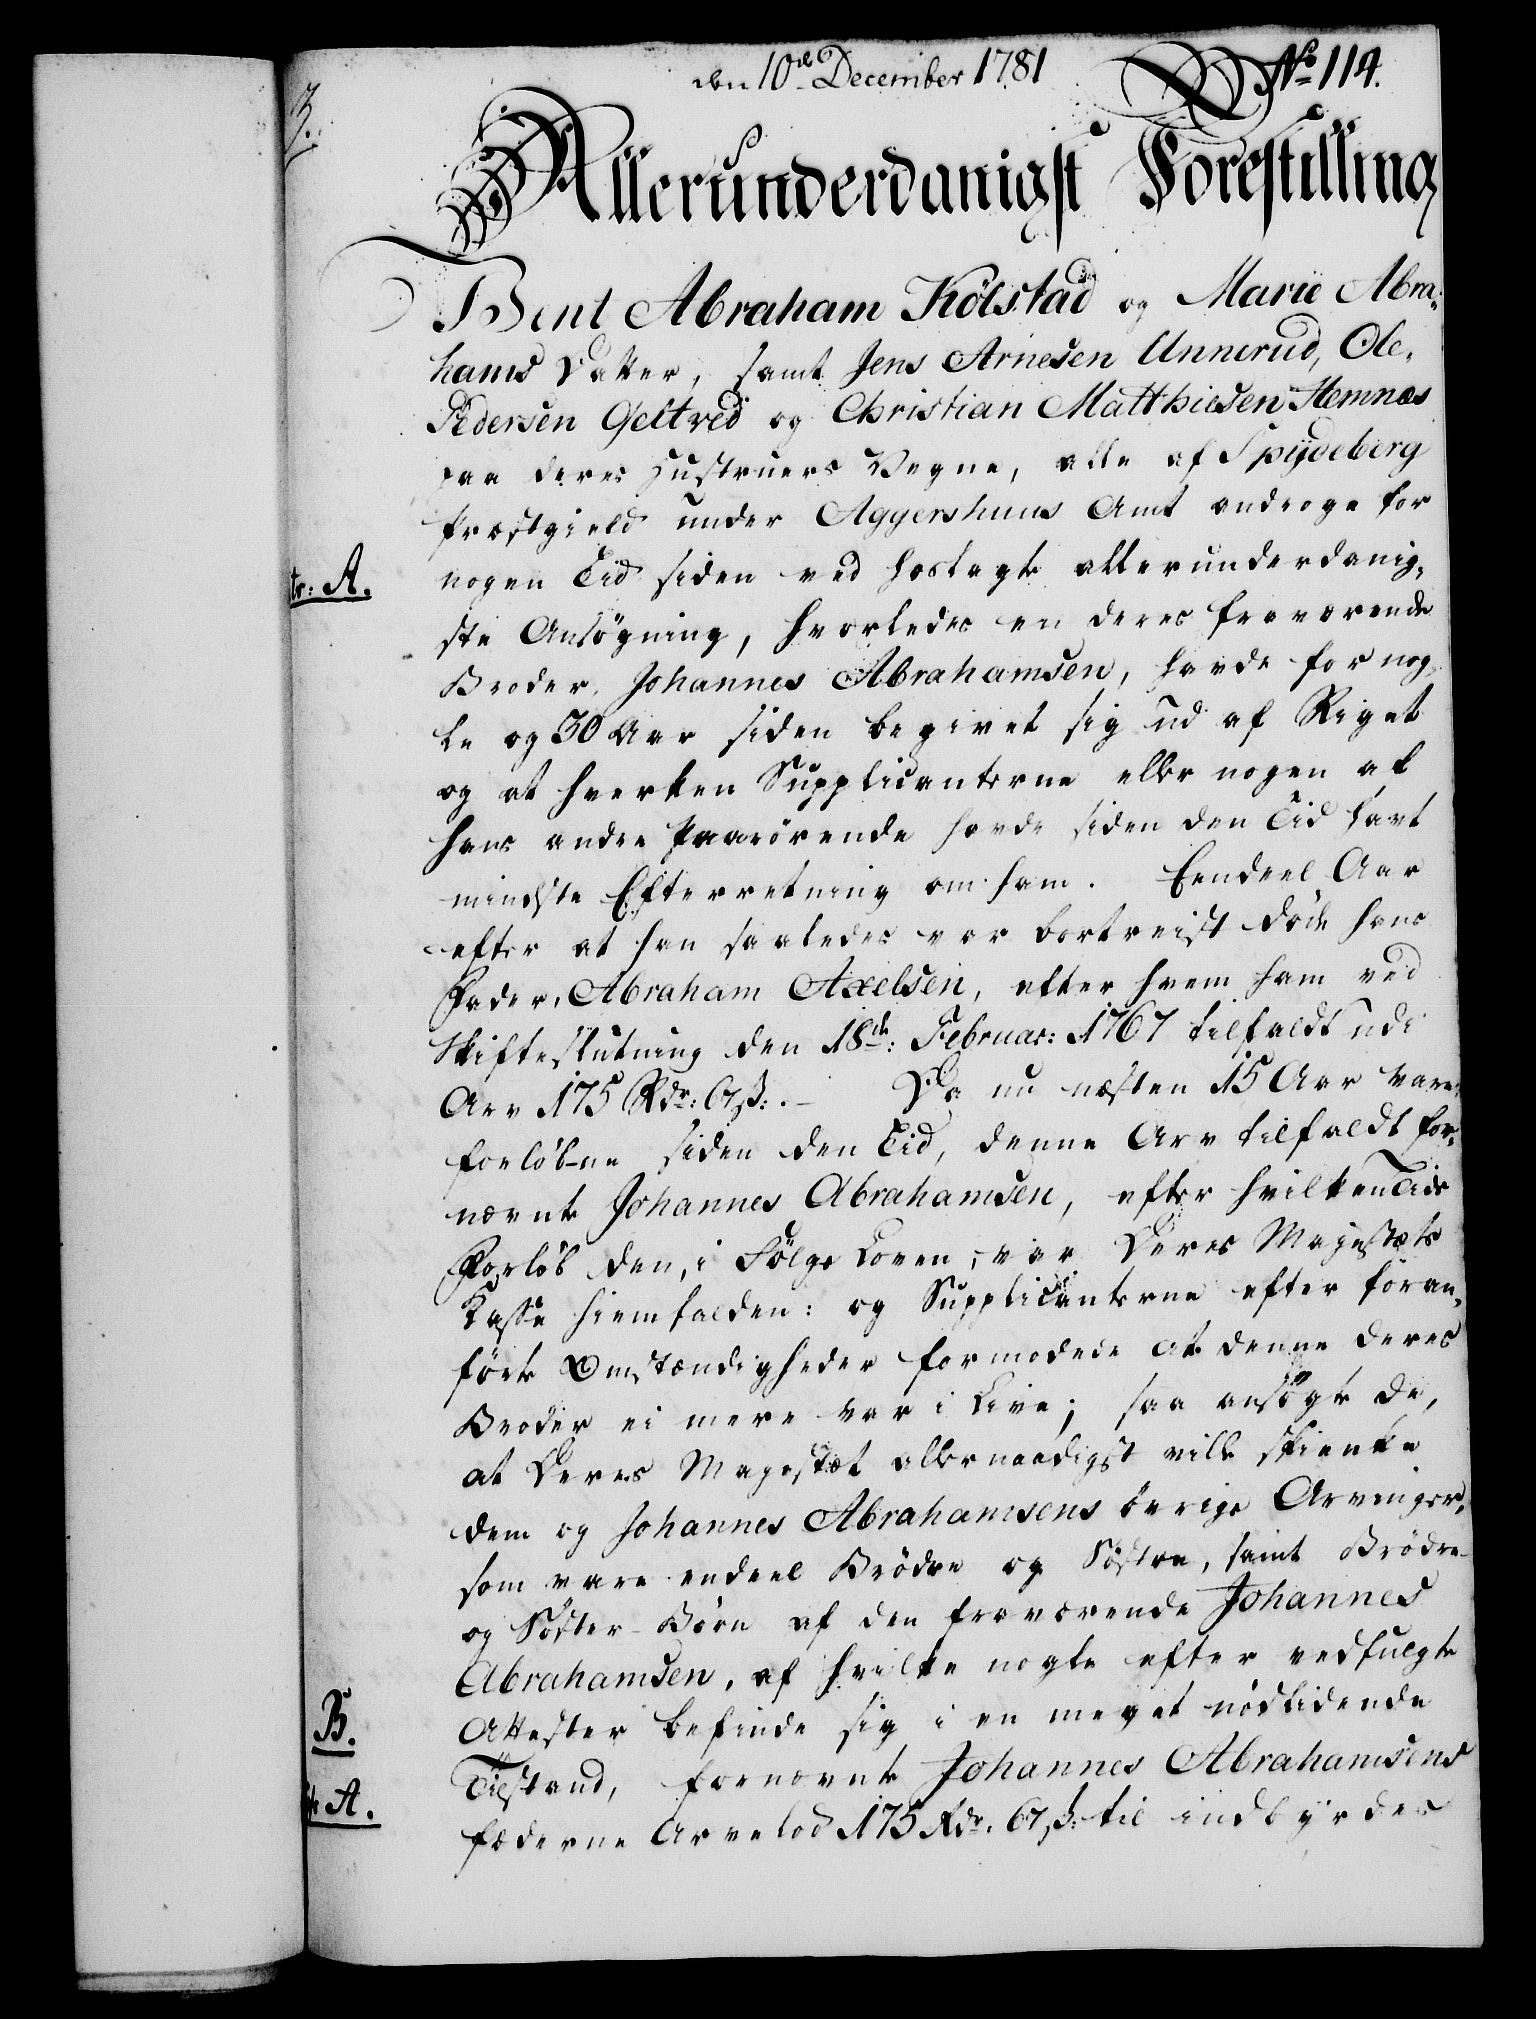 den 10de December 1781
No 114.
3.
Allerunderdanigst Forestilling
Bent Abraham Kölstad og Marie Abra-
hams Datter, samt Jens Arnesen Unnerud, Ole
Pedersen Geltved og Christian Matthiesen Hemnæs
paa deres Hustruers Vegne, alle af Spydeberg
Præstgield under Aggershuus Amt androge for
nogen Tid siden ved hoslagte allerunderdanig-
tr: A.
ste Ansögning, hvorledes en deres fraværende
Broder, Johannes Abrahamsen, havde for nog-
le og 30 Aar siden begivet sig ud af Riget
og at hverken Supplicanterne eller nogen af
hans andre Paarörende havde siden den Tid havt
mindste Efterretning om ham. Eendeel Aar
efter at han saaledes var bortreist döde hans
Fader, Abraham Axelsen, efter hvem ham ved
Skifteslutning den 18de: Februar: 1767 tilfaldt udi
Arv 175 Rdr: 67ß:. — Da nu næsten 15 Aar vare
forlöbne siden den Tid, denne Arv tilfaldt for-
nævnte Johannes Abrahamsen, efter hvilken Tids
Forlöb den, i Fölge Loven, var Deres Majestæts
Kasse hiemfalden: og Supplicanterne efter foran-
förte Omstændigheder formodede at denne deres
Broder ei mere var i Live; saa ansögte de,
at Deres Majestæt allernaadigst ville skienke
dem og Johannes Abrahamsens övrige Arvinger,
som vare endeel Brödre og Söstre, samt Brödre-
og Söster-Börn af den fraværende Johannes
Abrahamsen, af hvilke nogle efter vedfulgte
B.
Attester befinde sig i en meget nödlidende
Tilstand, fornævnte Johannes Abrahamsens
A.
fæderne Arvelod 175 Rdr. 67ß: til indbyrdes